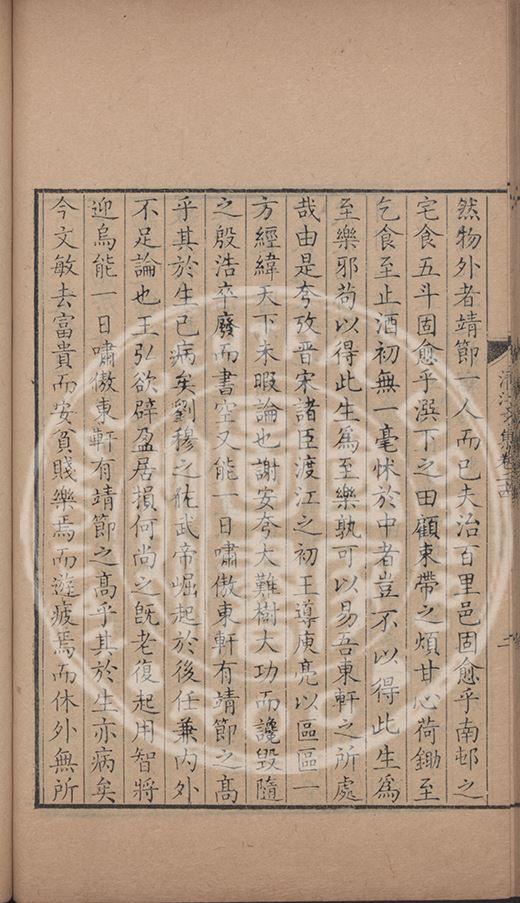 然物外者靖節一人而已夫治百里邑固愈乎南邨之
宅食五斗固愈乎潩下之田顧束帶之煩甘心荷鋤至
乞食至止酒初無一毫怵於中者豈不以得此生爲
至樂邪苟以得此生爲至樂孰可以易吾東軒之所處
哉由是夸攷晉宋諸臣渡江之初王導庾亮以區區一
方經緯天下未暇論也謝安夸大難樹大功而讒毀隨
之殷浩卒廢而書空又能一日嘯傲東軒有靖節之高
乎其於生已病矣劉穆之佐武帝崛起於後任兼内外
不足論也王弘欲辟盈居損何尚之旣老復起用智將
迎烏能一日嘯傲東軒有靖節之高乎其於生亦病矣
今文敏去富貴而安貧賤樂焉而遊疲焉而休外無所